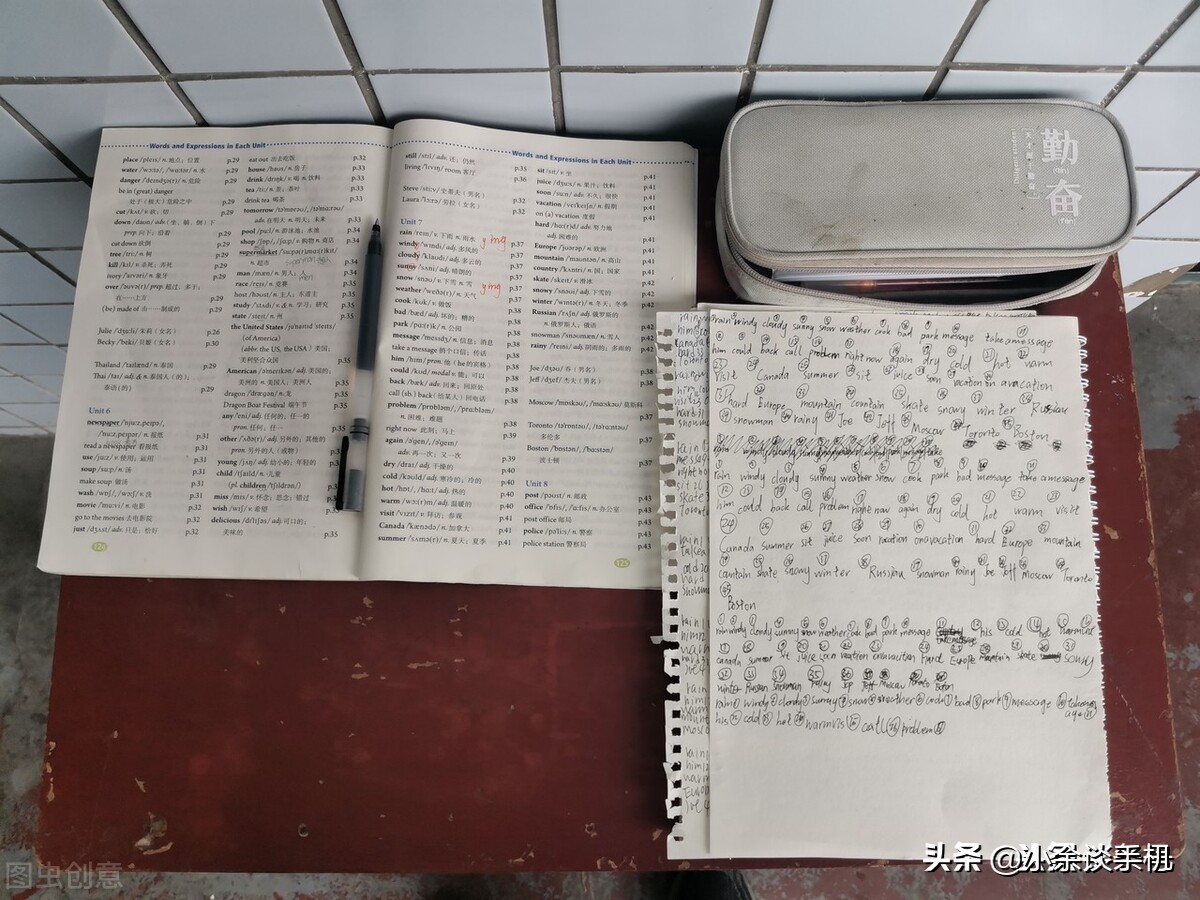 Words and Expressions in Each Unit
place /pleɪs/ n. 地点；位置 p.29
water /'wɔːtə/, /'wɑːtər/ n. 水 p.29
danger /'deɪndʒə(r)/ n. 危险 p.29
be in (great) danger
处于（极大）危险之中 p.29
cut /kʌt/ v. 砍；切 p.29
down /daʊn/ adv. (坐、躺、倒) 下
prep. 向下；沿着 p.29
cut down 砍倒 p.29
tree /triː/ n. 树 p.29
kill /kɪl/ v. 杀死；弄死 p.29
ivory /'aɪvəri/ n. 象牙 p.29
over /'əʊvə(r)/ prep. 超过；多于；
在……上方 p.29
(be) made of 由……制成的 p.29
Julie /'dʒuːli/ 朱莉（女名） p.26
Becky /'beki/ 贝姬（女名） p.30
Thailand /'taɪlænd/ n. 泰国 p.29
Thai /taɪ/ adj. & n. 泰国人（的）；
泰语（的） p.29
Unit 6
newspaper /'njuːz,peɪpə/,
/'nuːz,peɪpər/ n. 报纸 p.31
read a newspaper 看报纸 p.31
use /juːz/ v. 使用；运用 p.31
soup /suːp/ n. 汤 p.31
make soup 做汤 p.31
wash /wɒʃ/, /wɔːʃ/ v. 洗 p.31
movie /'muːvi/ n. 电影 p.32
go to the movies 去电影院 p.32
just /dʒʌst/ adv. 只是；恰好 p.32
124
eat out 出去吃饭 p.32
house /haʊs/ n. 房子 p.33
drink /drɪŋk/ v. 喝 n. 饮料 p.33
tea /tiː/ n. 茶；茶叶 p.33
drink tea 喝茶 p.33
tomorrow /tə'mɒrəʊ/, /tə'mɑːrəʊ/
adv. 在明天 n. 明天；未来 p.33
pool /puːl/ n. 游泳池；水池 p.34
shop /ʃɒp/, /ʃɑːp/ v. 购物 n. 商店 p.34
supermarket
n. 超市 p.34
man /mæn/ n. 男人；人 p.34
race /reɪs/ n. 竞赛 p.35
host /həʊst/ n. 主人；东道主 p.35
study /'stʌdi/ v. & n. 学习；研究 p.35
state /steɪt/ n. 州 p.35
the United States /juːnaɪtɪd 'steɪts/
(of America)
(abbr. the US, the USA) 美国；
美利坚合众国 p.35
American /ə'merɪkən/ adj. 美国的；
美洲的 n. 美国人；美洲人 p.35
dragon /'drægən/ n. 龙 p.35
Dragon Boat Festival 端午节 p.35
any /'eni/ adj. 任何的；任一的
pron. 任何；任一 p.35
other /'ʌðə(r)/ adj. 另外的；其他的
pron. 另外的人（或物） p.35
young /jʌŋ/ adj. 幼小的；年轻的 p.35
child /tʃaɪld/ n. 儿童 p.35
(pl. children /'tʃɪldrən/)
miss /mɪs/ v. 怀念；思念；错过 p.35
wish /wɪʃ/ v. 希望 p.35
delicious /dɪ'lɪʃəs/ adj. 可口的；
美味的 p.35
Words and Expressions in Each Unit
still /stɪl/ adv. 还；仍然 p.35
living /'lɪvɪŋ/ room 客厅 p.36
Steve /stiːv/ 史蒂夫（男名） p.32
Laura /'lɔːrə/ 劳拉（女名） p.32
Unit 7
rain /reɪn/ v. 下雨 n. 雨水 p.37
windy /'wɪndi/ adj. 多风的 p.37
cloudy /'klaʊdi/ adj. 多云的 p.37
sunny /'sʌni/ adj. 晴朗的 p.37
snow /snəʊ/ v. 下雪 n. 雪 p.37
weather /'weðə(r)/ n. 天气 p.37
cook /kʊk/ v. 做饭 p.37
bad /bæd/ adj. 坏的；糟的 p.38
park /pɑː(r)k/ n. 公园 p.38
message /'mesɪdʒ/ n. 信息；消息 p.38
take a message 捎个口信；传话 p.38
him /hɪm/ pron. 他 (he 的宾格) p.38
could /kʊd/ modal v. 能；可以 p.38
back /bæk/ adv. 回来；回原处 p.38
call (sb.) back (给某人) 回电话 p.38
problem /'prɒbləm/, /'prɑːbləm/
n. 困难；难题 p.38
right now 此刻；马上 p.38
again /ə'gen/, /ə'geɪn/
adv. 再一次；又一次 p.38
dry /draɪ/ adj. 干燥的 p.39
cold /kəʊld/ adj. 寒冷的；冷的 p.40
hot /hɒt/, /hɑːt/ adj. 热的 p.40
warm /wɔː(r)m/ adj. 温暖的 p.40
visit /'vɪzɪt/ v. 拜访；参观 p.41
Canada /'kænədə/ n. 加拿大 p.41
summer /'sʌmə(r)/ n. 夏天；夏季 p.41
sit /sɪt/ v. 坐 p.41
juice /dʒuːs/ n. 果汁；饮料 p.41
soon /suːn/ adv. 不久；很快 p.41
vacation n. 假期 p.41
on (a) vacation 度假 p.41
hard /hɑː(r)d/ adv. 努力地
adj. 困难的 p.41
Europe /'jʊərəp/ n. 欧洲 p.41
mountain /'maʊntən/ n. 高山 p.41
country /'kʌntri/ n. 国；国家 p.41
skate /skeɪt/ v. 滑冰 p.42
snowy /'snəʊi/ adj. 下雪的 p.42
winter /'wɪntə(r)/ n. 冬天；冬季 p.42
Russian /'rʌʃn/ adj. 俄罗斯的
n. 俄罗斯人；俄语 p.42
snowman /'snəʊmæn/ n. 雪人 p.42
rainy /'reɪni/ adj. 阴雨的；多雨的 p.42
Joe /dʒəʊ/ 乔（男名） p.38
Jeff /dʒef/ 杰夫（男名） p.38
Moscow /'mɒskəʊ/, /'mɑːskaʊ/ 莫斯科 p.37
Toronto /tə'rɒntəʊ/, /tə'rɑːntəʊ/
多伦多 p.37
Boston /'bɒstən/, /'bɔːstən/
波士顿 p.37
Unit 8
post /pəʊst/ n. 邮政 p.43
office /'ɒfɪs/, /'ɔːfɪs/ n. 办公室 p.43
post office 邮局 p.43
police /pə'liːs/ n. 警察 p.43
police station 警察局 p.43
125
勤
(qín)
奋
(fèn)
rain windy cloudy sunny snow weather cook bad park message take a message
him could back call problem right now again dry cold hot warm
visit Canada summer sit juice soon vacation on a vacation
hard Europe mountain countain skate snowy winter Russian
snowman rainy Joe Jeff Moscow Toronto Boston
rain windy cloudy sunny weather snow cook park bad message take a message
him could back call problem right now again dry cold hot warm visit
Canada summer sit juice soon vacation on a vacation hard Europe mountain
countain skate snowy winter Russian snowman rainy Joe Jeff Moscow Toronto
Boston
rain windy cloudy sunny snow weather cook bad park message his cold hot
canada summer sit juice soon vacation on vacation Hard Europe mountain skate
winter Russian snowman rainy Joe Jeff Moscow Toronto Boton
rain windy cloudy sunny snow weather cook bad park message
his cold hot call problem
头条 @小余谈手机
图虫创意